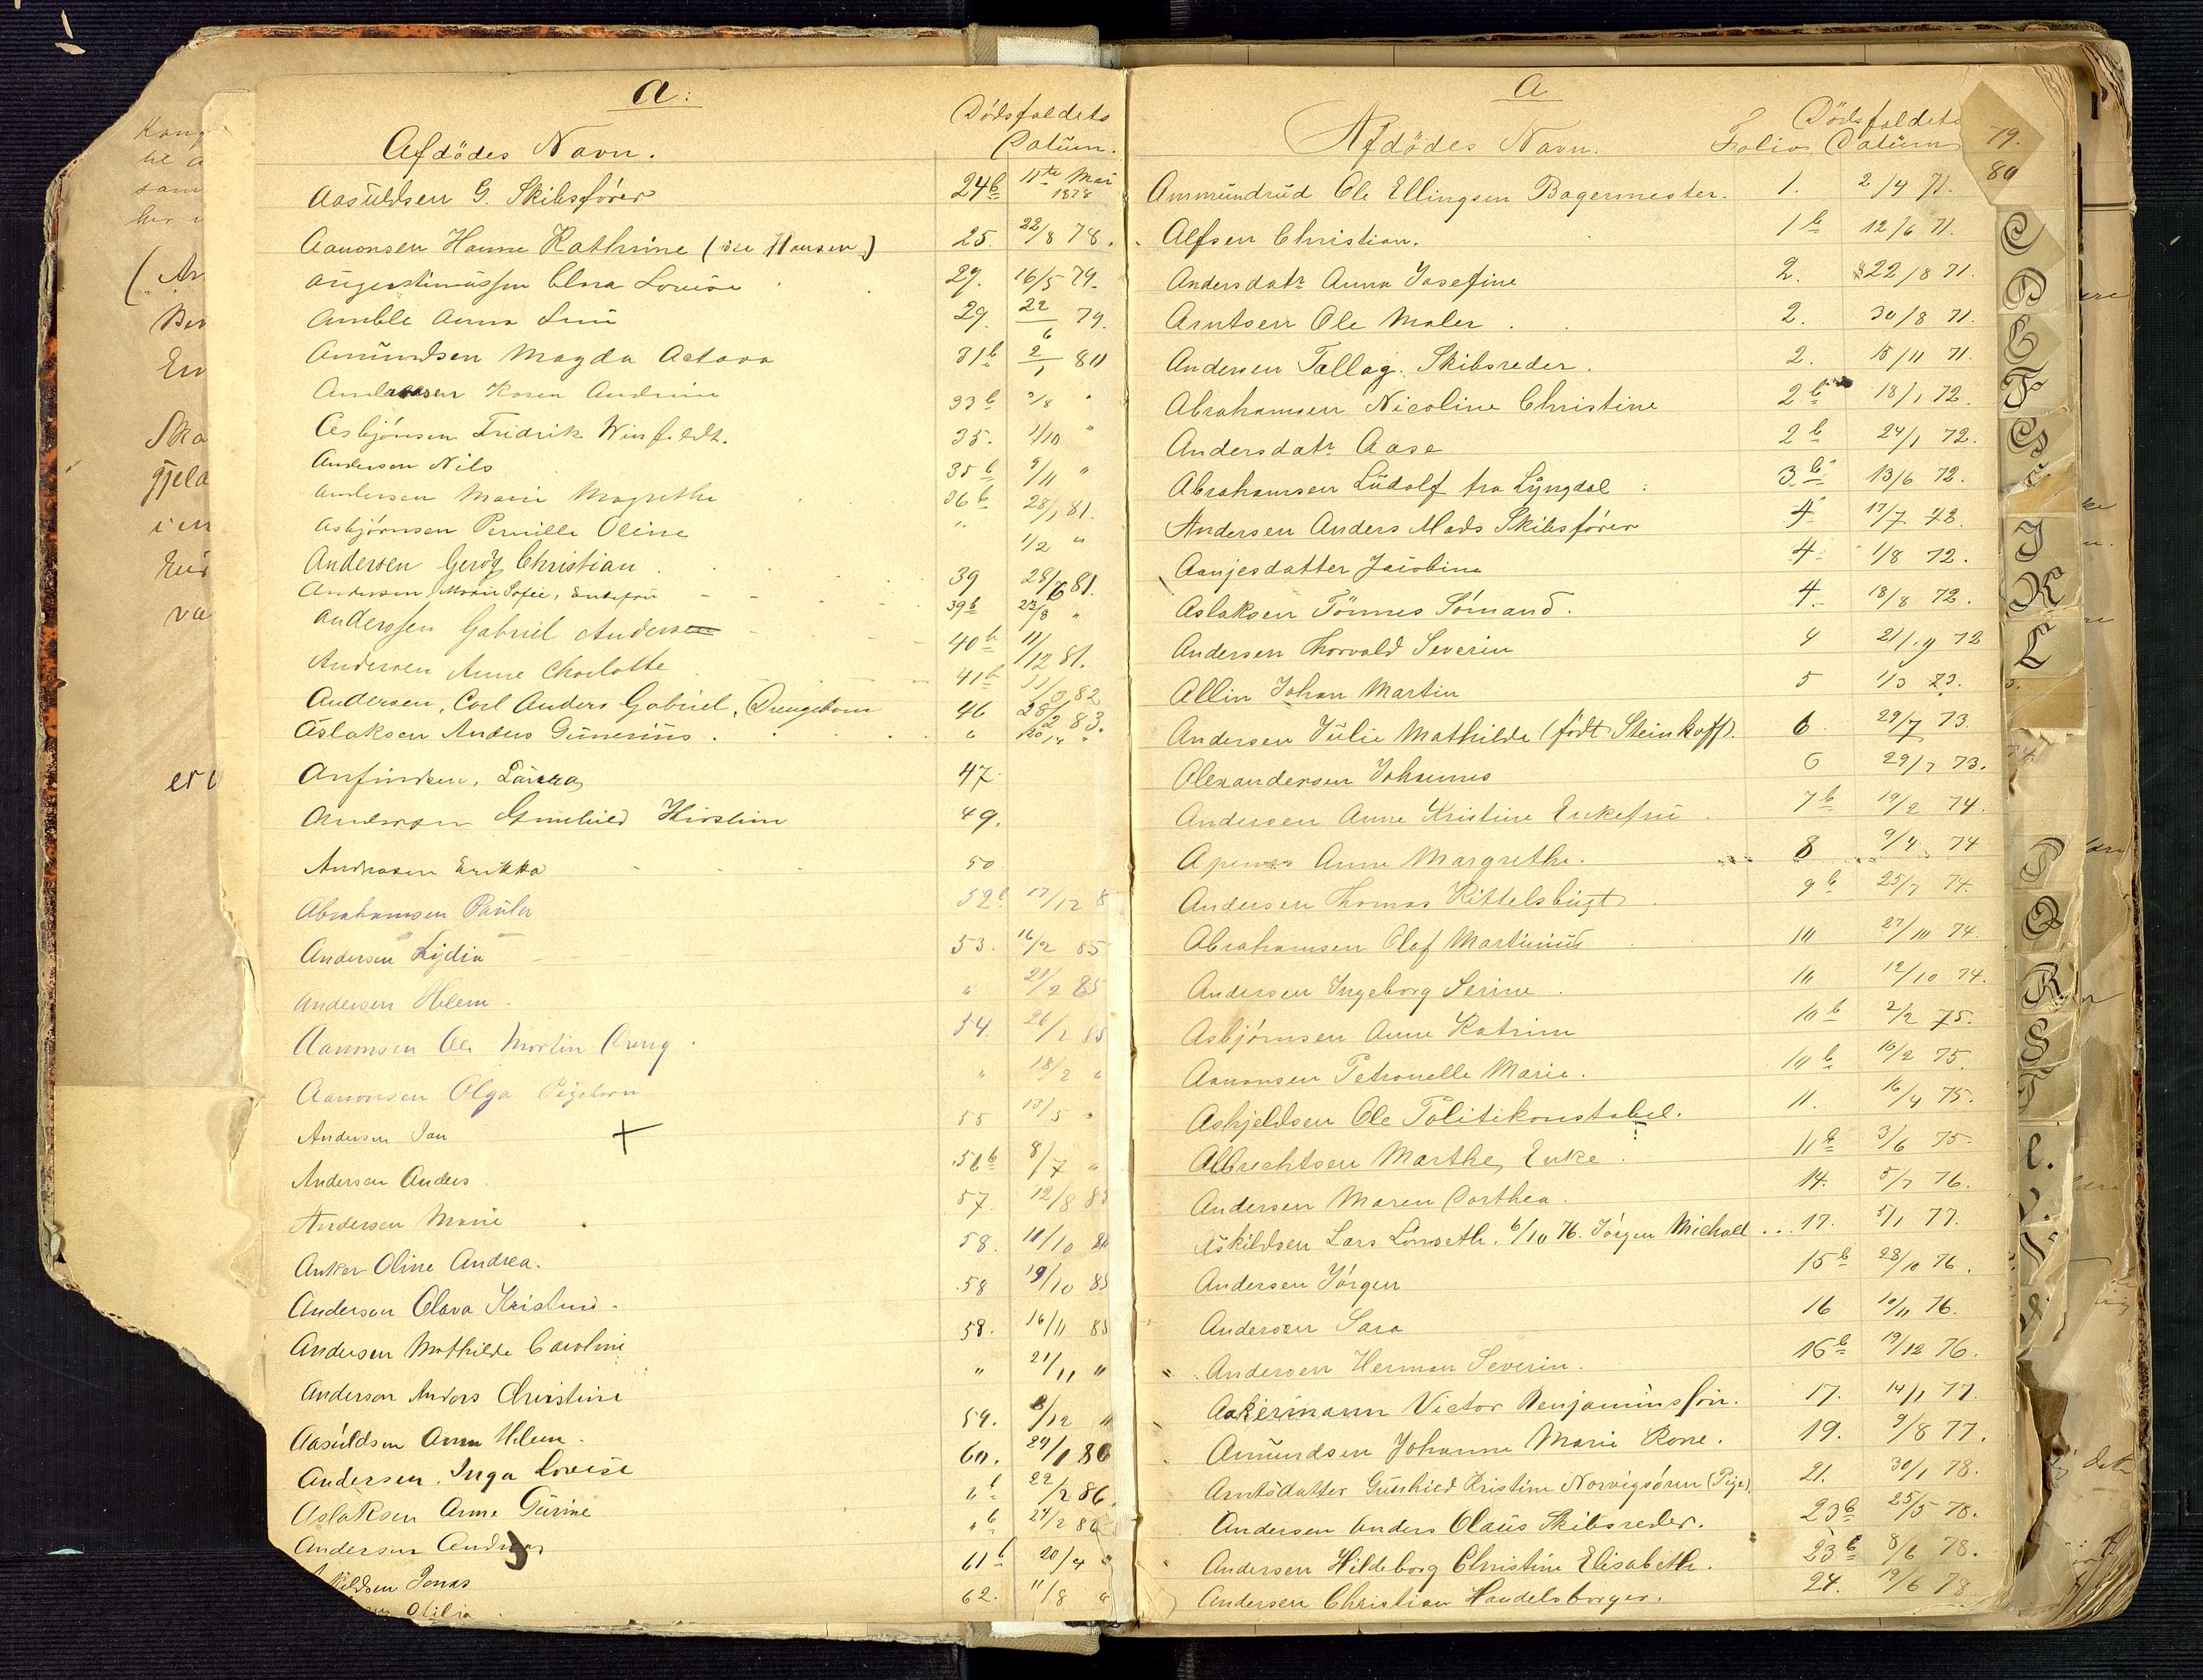 a:
Dödsfaldets
Afdödes Navn. Datum.
Aasuldsen G. Skibsfører 24b 11te Mai 1878
Aanonsen Hanne Kathrine (see Hansen) 25. 22/8 78.
29. 16/5 79.
Amble Anna 29. 22/6 79.
Amundsen Magda Octava 31b 2/1 80
Karen Andrine 33b
Asbjönsen Fridrik 35. 1/10 "
Andersen Nils 35b 9/11 "
Andersen Marie Magrethe 36b 28/1 81.
Asbjørnsen Pernille Oline " 1/2 "
Andersen Christian 39 28/6 81.
Andersen, Marie Sofie, Enkefru 39b 23/8 "
Anderssen Gabriel Andersen 40b 11/12 81.
Andersen Anne Charlotte 41b
Andersen, Carl Anders Gabriel, Drengebarn 46 28/2 83.
Aslaksen Anders Gunerius "
Anfindsen, 47.
Andersen Gunhild Kirstin 49.
Andreasen Erikka 50
Abrahamsen Paula 52b 17/12 8
Andersen Lydia 53. 16/2 85
Andersen Helene " 21/2 85
Aanonsen Ole Martin Dreng 54. 26/2 85
Aanonsen Olga Pigebarn " 18/2 "
Andersen Jan 55 13/5 "
Andersen Anders 56b 8/7 "
Andersen Marie 57. 12/8 85
Anker Oline Andrea. 58.
Andersen Olava Kristine 58 19/10 85
Andersen Mathilde Caroline 58. 16/11 85
Andersen Anders Christine " 21/11 "
Aasuldsen Anne Helene 59. 8/12 "
Andersen. Inga Lovise 60. 29/1 86
Aslaksen Anne Gurine "b 22/2 86.
Andersen Andreas "b 24/2 86
Jonas 61b 20/4 "
Otilia 62. 11/8 "
A
Dödsfaldets
Afdödes Navn. Folio Datum
79.
80
Ammundrud Ole Ellingsen Bagermester. 1. 2/4 71.
Alfsen Christian. 1b 12/6 71.
Andersdatr Anna Josefine 2. 22/8 71.
Arntsen Ole Maler 2. 30/8 71.
Andersen Tellag. Skibsreder. 2. 15/11 71.
Abrahamsen Nicoline Christine 2b 18/1 72.
Andersdatr Aase 2b 24/1 72.
Abrahamsen Ludolf fra Lyngdal 3b 13/6 72.
Andersen Anders Mads Skibsfører 4 17/7 72.
Aanjesdatter Jacobine 4 1/8 72.
Aslaksen Tönnes Sömand. 4. 18/8 72.
Andersen Thorvald Severin 4 21/9 72
Allin Johan Martin 5 1/3 73.
Andersen Julie Mathilde (født Steinhoff). 6. 29/7 73.
Alexandersen Johannes 6 29/7 73.
Andersen Anne Kristine Enkefru 7b 19/2 74.
Anne Margrethe. 8 9/4 74
Andersen Thomas Kittelsbugt 9b 25/7 74.
Abrahamsen Olaf Martinius 10 27/10 74.
Andersen Ingeborg Serine 10 12/10 74.
Asbjørnsen Anne Katrine 10b 2/2 75.
Aanonsen Petronelle Marie. 10b 16/2 75.
Askjeldsen Ole Politikonstabel. 11. 16/4 75.
Albrechtsen Marthe, Enke 11b 3/6 75.
Andersen Maren Dorthea. 14. 5/7 76.
Askildsen Lars 6/10 76. Jörgen Michael 17. 5/1 77.
Andersen Jörgen 15b 28/10 76.
Andersen Sara 16 10/11 76.
Andersen Herman Severin. 16b 19/12 76.
Aakermann Victor Benjaminsøn. 17. 14/1 77.
Amundsen Johanne Marie Kone. 19. 9/8 77.
Arntsdatter Gunhild Kristine (Pige) 21. 30/1 78.
Andersen Anders Olaus Skibsreder. 23b 25/5 78.
Andersen Hildeborg Christine Elisabeth. 23b 8/6 78.
Andersen Christian Handelsborger. 24. 19/6 78
C
D
E
F
G
I
K
L
P
Q
R
S
T